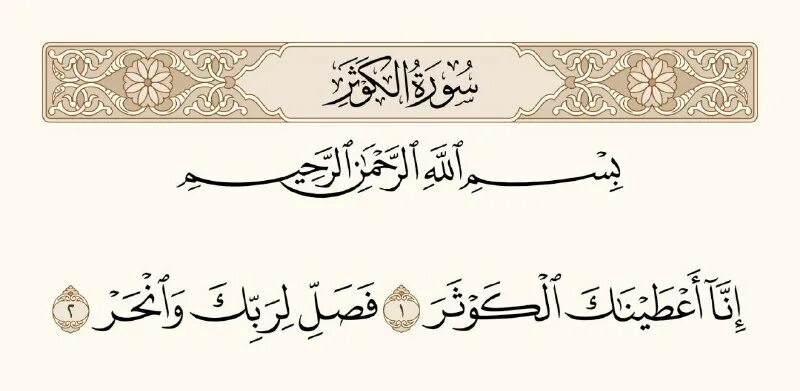 سُورَةُ الْكَوْثَرِ
بِسْمِ ٱللَّهِ ٱلرَّحْمَـٰنِ ٱلرَّحِيمِ
إِنَّآ أَعْطَيْنَـٰكَ ٱلْكَوْثَرَ ١ فَصَلِّ لِرَبِّكَ وَٱنْحَرْ ٢